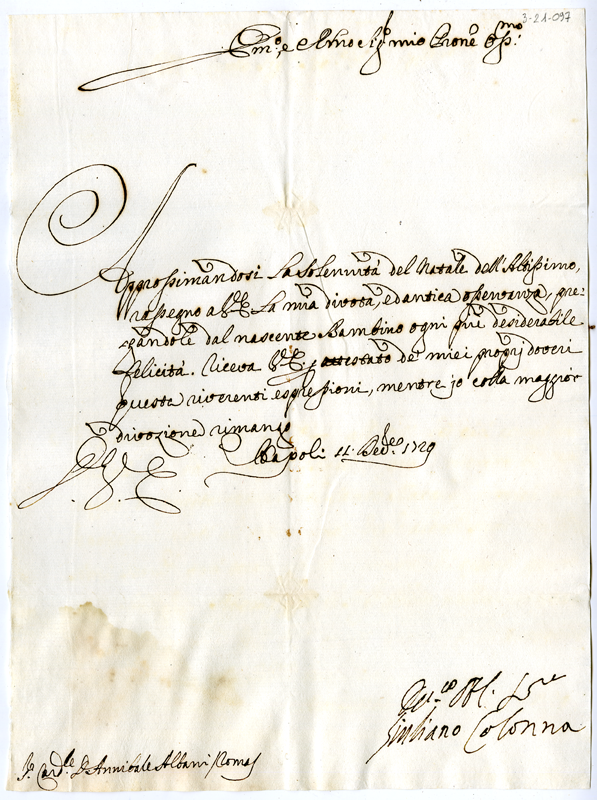 3-21-097
Em.o, e Rmo Sig.r mio Prone Oss.mo
Approssimandosi la Solennità del Natale dell'Altissimo,
rassegno a V.E. la mia divota, ed antica osservanza, pre-
gandole dal nascente Bambino ogni più desiderabile
felicità. Riceva V.E. p attestato de' miei proprj doveri
queste riverenti espressioni, mentre io colla maggior
divozione rimango
Napoli 11. Dec.e 1729
D. V. E.
Giuliano Colonna
S.r Card.le D. Annibale Albani Roma